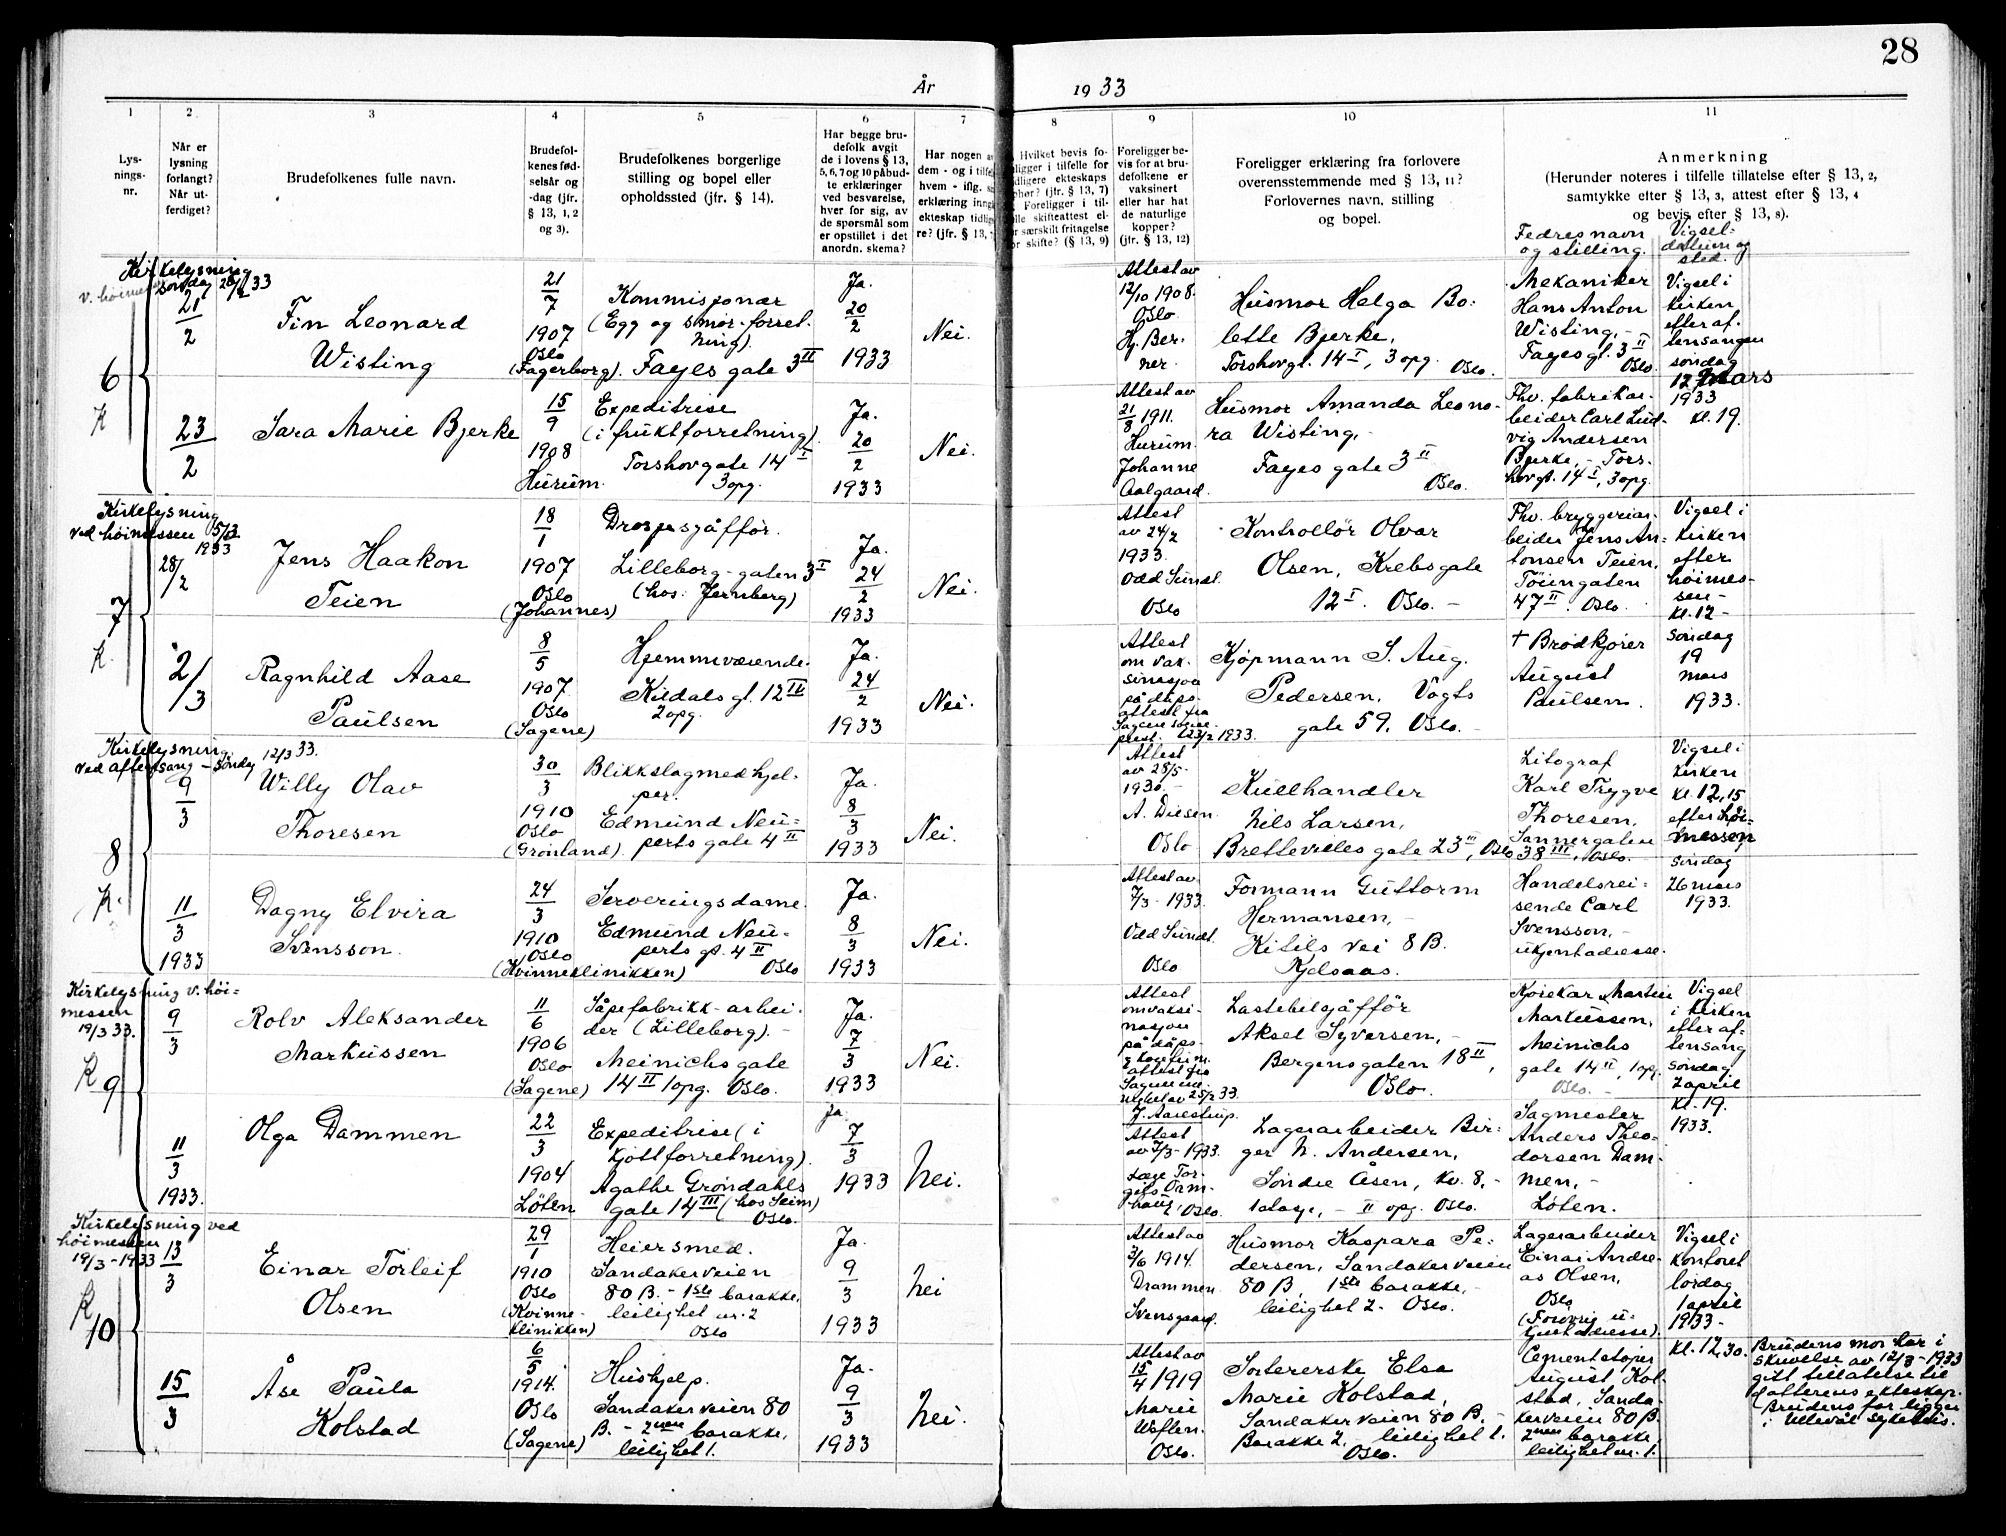 28
År 1933
1 2 3 4 5 6 7 8 9 10 11
Lys-
nings-
nr.
Når er
lysning
forlangt?
Når ut-
ferdiget?
Brudefolkenes fulle navn.
Brudefol-
kenes fød-
selsår og
-dag (jfr.
§ 13, 1, 2
og 3).
Brudefolkenes borgerlige
stilling og bopel eller
opholdssted (jfr. § 14).
Har begge bru-
defolk avgit
de i lovens § 13,
5, 6, 7 og 10 påbud-
te erklæringer
ved besvarelse,
hver for sig, av
de spørsmål som
er opstillet i det
anordn. skema?
Har nogen a
dem - og i tilfel
hvem - iflg. s
erklæring inng
ekteskap tidlig
re? (jfr. § 13,
Hvilket bevis fo-
ligger i tilfelle for
dligere ekteskaps
phør? (jfr. § 13, 7)
Foreligger i til-
lle skifteattest el-
r særskilt fritagelse
or skifte? (§ 13, 9)
Foreligger be-
vis for at bru-
defolkene er
vaksinert
eller har hat
de naturlige
kopper?
(jfr. § 13, 12)
Foreligger erklæring fra forlovere
overensstemmende med § 13, 11?
Forlovernes navn, stilling
og bopel.
Anmerkning
(Herunder noteres i tilfelle tillatelse efter § 13, 2,
samtykke efter § 13, 3, attest efter § 13, 4
og bevis efter § 13, 8).
Fedres navn
og stilling.
Vigsel-
datum og
sted.
Kirkelysning
søndag 26/2 33
6
K
21/2
Fin Leonard
Wisting
21/7
1907
Oslo
(Fagerborg).
Kommisjonær
(Egg og smør-forret-
ning).
Fayes gate 3 II
Ja.
20/2
1933
Nei.
Attest av
12/10 1908.
Oslo
Hj. Ber-
ner.
Husmor Helga Bo-
lette Bjerke,
Torshovgt. 14 I, 3 opg. Oslo.
Mekaniker
Hans Anton
Wisting,-
Fayesgt. 3 II
Oslo.
Vigsel i
kirken
efter af-
tensangen
søndag
12 mars
1933
kl. 19.
23/2
Sara Marie Bjerke
15/9
1908
Hurum.
Expeditrise
(i fruktforretning).
Torshovgate 14 I
3 opg.
Ja.
20/2
1933
Nei.
Attest av
21/8 1911.
Hurum.
Johanne
Aalgaard.
Husmor Amanda Leono-
ra Wisting,-
Fayes gate 3 II
Oslo.
Fhv. fabrikar-
beider Carl Lud-
vig Andersen
Bjerke,- Tors-
hovgt. 14 I, 3 opg.
Kirkelysning
ved høimessen 5/3
1933
7
K.
28/2
Jens Haakon
Teien
18/1
1907
Oslo
(Johannes)
Drosjesjåffør.
Lilleborg-gaten 3 I
(hos: Jernberg)
Ja.
24/2
1933
Nei.
Attest
av 24/2
1933.
Odd Sundt.
Oslo
Kontrollør Olvar
Olsen, Krebsgate
12 I. Oslo.-
Fhv. bryggeriar-
beider Jens An-
tonsen Teien,
Tøiengaten
47 II. Oslo.
Vigsel i
kirken
efter
høimes-
sen-
kl. 12-
søndag
19
mars
1933.
2/3
Ragnhild Aase
Paulsen
8/5
1907.
Oslo
(Sagene)
Hjemmeværende.
Kildalsgt. 12 IV
2 opg.
Ja.
24/2
1933
Nei.
Attest
om vak-
sinasjon
på dåps-
attest fra
Sagene sogne-
prest. 23/2 1933.
Kjøpmann S. Aug.
Pedersen, Vogts
gate 59, Oslo.-
† Brødkjører
August
Paulsen.
Kirkelysning
ved aftensang - søndag 12/3 33.
8
K.
9/3
Willy Olav
Thoresen
30/3
1910
Oslo
(Grønland).
Blikkslagmedhjel-
per.
Edmund Neu-
perts gate 4 II
Ja.
8/3
1933
Nei.
Attest
av 28/5-
1930.-
A. Diesen.
Oslo
Kullhandler
Nils Larsen,
Brettevilles gate 23 III, Oslo
Litograf
Karl Trygve
Thoresen,
Sannergaten
38 III, Oslo.
Vigsel i
kirken
kl. 12,15
efter høi-
messen
søndag
26 mars
1933.
11/3
1933
Dagny Elvira
Svensson.
24/3
1910
Oslo
(Kvinneklinikken)
Serveringsdame.
Edmund Neu-
perts gt. 4 II
Oslo
Ja.
8/3
1933
Nei.
Attest av
7/3-1933.
Odd Sundt.
Oslo
Formann Guttorm
Hermansen,-
Kitils vei 8 B.
Kjelsaas.
Handelsrei-
sende Carl
Svensson,-
ukjent adresse.
Kirkelysning v. høi-
messen
19/3 33.
K 9
9/3
Rolv Aleksander
Markussen
11/6
1906
Oslo
(Sagene)
Såpefabrikk-arbei-
der (Lilleborg).-
Meinichs gate
14 II 1 opg. Oslo.
Ja.
7/3
1933
Nei.
Attest
om vaksi-
nasjon
på dåps-
attest fra
Sagene me-
nighet av 25/2 33.
J. Aarestrup.
Lastebilsjåffør
Aksel Syversen,-
Bergensgaten 18 II,
Oslo.
Kjørekar Martin
Markussen,
Meinichs
gate 14 II, 1 opg.
Oslo.-
Vigsel
i kirken
efter af-
tensang
søndag
2 april
kl. 19.
1933.
11/3
1933.
Olga Dammen
22/3
1904
Løten
Expeditrise (i
kjøttforretning).
Agathe Grøndahls
gate 14 III (hos Seim)
Oslo.
Ja.
7/3
1933
Nei.
Attest
av 7/3-1933.
Oslo.
Lagerarbeider Bir-
ger N. Andersen,
Søndre Åsen, kv. 8,-
1 etasje,- II opg. Oslo.
Sagmester
Anders Theo-
dorsen Dam-
men,-
Løten.
Kirkelysning ved
høimessen
19/3-1933
K
10
13/3
Einar Torleif
Olsen
29/1
1910
Oslo
(Kvinne-
klinikken)
Heiersmed.
Sandakerveien
80 B.- 1ste barakke,
leilighet nr. 2
Oslo
Ja.
9/3
1933
Nei
Attest av
3/6 1914.
Drammen.
Svensgaard.
Husmor Kaspara Pe-
dersen, Sandakerveien
80 B, 1ste barakke,-
leilighet 2- Oslo.
Lagerarbeider
Einar Andre-
as Olsen,
Oslo
(Forøvrig u-
kjent adresse).
Vigsel i
kontoret
lørdag
1 april
1933-
kl. 12,30.
15/3
Åse Paula
Kolstad
6/5
1914.
Oslo
(Sagene)
Hushjelp.
Sandakerveien 80
B.- 2nen barakke,
leilighet 1.
Ja.
9/3
1933
Nei.
Attest av
15/4 1919
Marie
Oslo.
Sortererske Elsa
Marie Kolstad,
Sandakerveien 80 B.-
Barakke 2.- leilighet 1.
Oslo.
Cementstøper
August Kol-
stad, Sanda-
kerveien 80 B.
2nen barakke,
leilighet nr. 1.
Brudens mor har i
skrivelse av 12/3-1933
gitt tillatelse til
datterens ekteskap.
Brudens far ligger
i Ullevål sykehus.